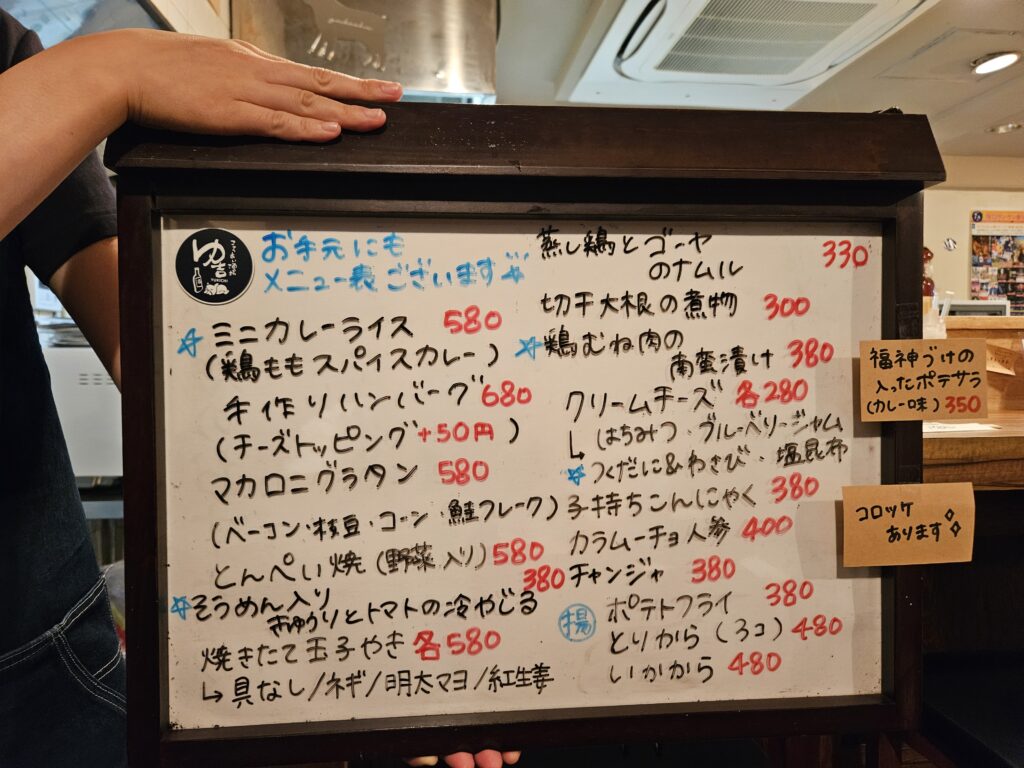 ゆ吉
YUKICHI
お手元にも
メニュー表ございます
ミニカレーライス 580
(鶏ももスパイスカレー)
手作りハンバーグ 680
(チーズトッピング+50円)
マカロニグラタン 580
(ベーコン・枝豆・コーン・鮭フレーク)
とんぺい焼(野菜入り) 580
そうめん入り 380
きゅうりとトマトの冷やじる
焼きたて玉子やき 各580
↳具なし/ネギ/明太マヨ/紅生姜
蒸し鶏とゴーヤ
のナムル 330
切干大根の煮物 300
鶏むね肉の
南蛮漬け 380
クリームチーズ 各280
↳(はちみつ・ブルーベリージャム
つくだに&わさび・塩昆布
子持ちこんにゃく 380
カラムーチョ人参 400
チャンジャ 380
揚 ポテトフライ 380
とりから(3コ) 480
いかから 480
福神づけの
入ったポテサラ
(カレー味) 350
コロッケ
あります